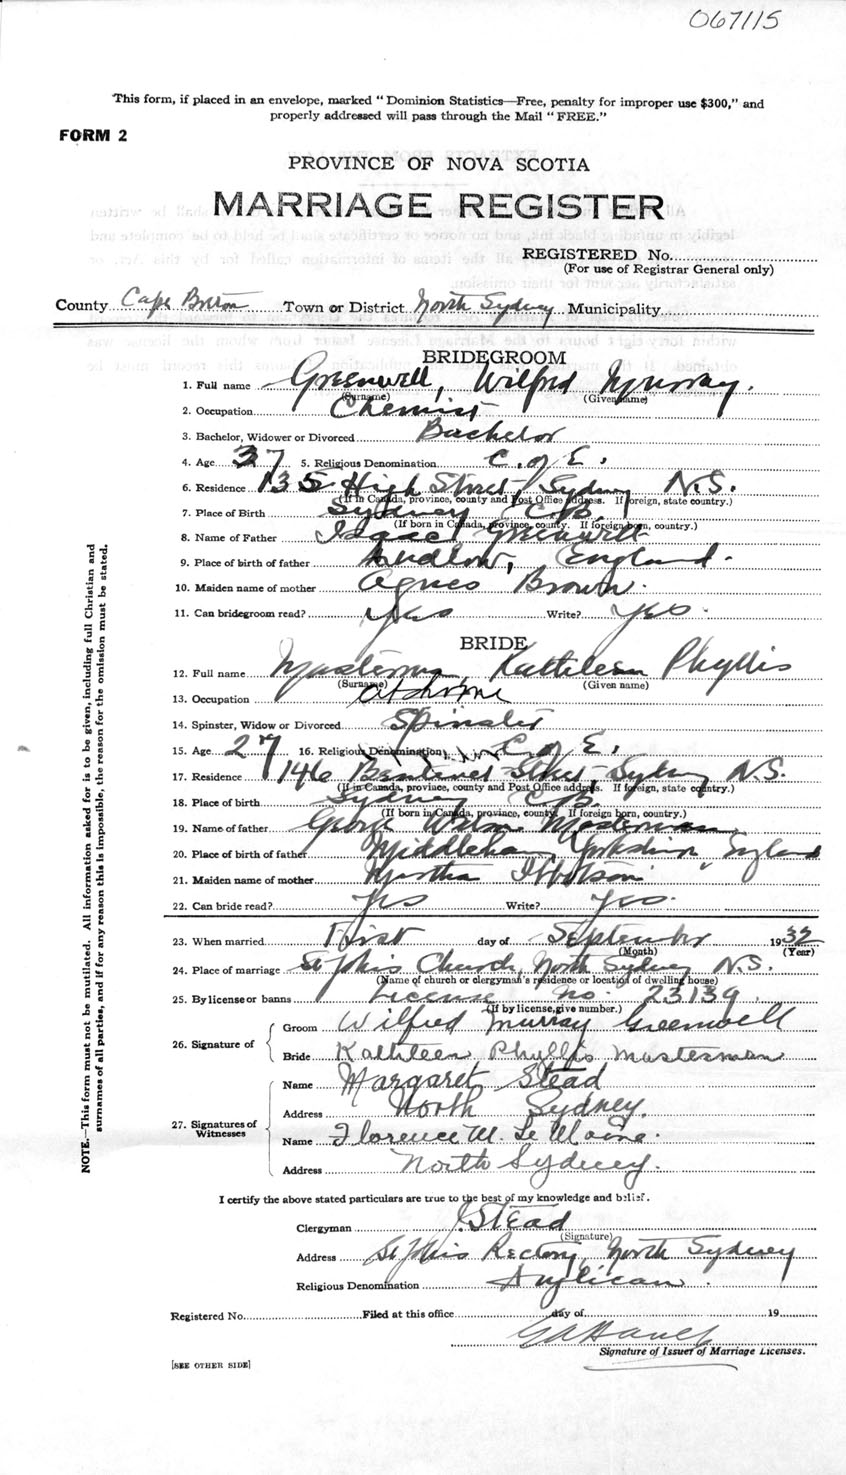 067115
This form, if placed in an envelope, marked "Dominion Statistics—Free, penalty for improper use $300," and
properly addressed will pass through the Mail "FREE."
FORM 2
PROVINCE OF NOVA SCOTIA
MARRIAGE REGISTER
REGISTERED No.
(For use of Registrar General only)
County Cape Breton Town or District North Sydney Municipality
BRIDEGROOM
1. Full name Greenwell, Wilfred Murray.
(Surname) (Given name)
2. Occupation Chemist
3. Bachelor, Widower or Divorced Bachelor
4. Age 37 5. Religious Denomination C. of E.
6. Residence 135 High Street Sydney N.S.
(If in Canada, province, county and Post Office address. If foreign, state country.)
7. Place of Birth Sydney C.B.
(If born in Canada, province, county. If foreign born, country.)
8. Name of Father Isaac Greenwell
9. Place of birth of father Ludlow, England.
10. Maiden name of mother Agnes Brown.
11. Can bridegroom read? Yes Write? Yes.
BRIDE
12. Full name Masterman, Kathleen Phyllis
(Surname) (Given name)
13. Occupation at home
14. Spinster, Widow or Divorced Spinster
15. Age 27 16. Religious Denomination C. of E.
17. Residence 146 Street Sydney N.S.
(If in Canada, province, county and Post Office address. If foreign, state country.)
18. Place of birth Sydney C.B.
(If born in Canada, province, county. If foreign born, country.)
19. Name of father George Masterman
20. Place of birth of father Middleham, Yorkshire, England
21. Maiden name of mother Martha Ibbotson
22. Can bride read? Yes Write? Yes.
23. When married First day of September 1932
(Month) (Year)
24. Place of marriage St John's Church, North Sydney N.S.
(Name of church or clergyman's residence or location of dwelling house)
25. By license or banns License no. 23139.
(If by license, give number.)
26. Signature of
Groom Wilfred Murray Greenwell
Bride Kathleen Phyllis Masterman
27. Signatures of Witnesses
Name Margaret Stead
Address North Sydney.
Name Florence M. Le Moine.
Address North Sydney.
I certify the above stated particulars are true to the best of my knowledge and belief.
Clergyman J Stead
(Signature)
Address St John's Rectory, North Sydney
Religious Denomination Anglican.
Registered No. Filed at this office day of 19
Signature of Issuer of Marriage Licenses.
[SEE OTHER SIDE]
NOTE.—This form must not be mutilated. All information asked for is to be given, including full Christian and
surnames of all parties, and if for any reason this is impossible, the reason for the omission must be stated.